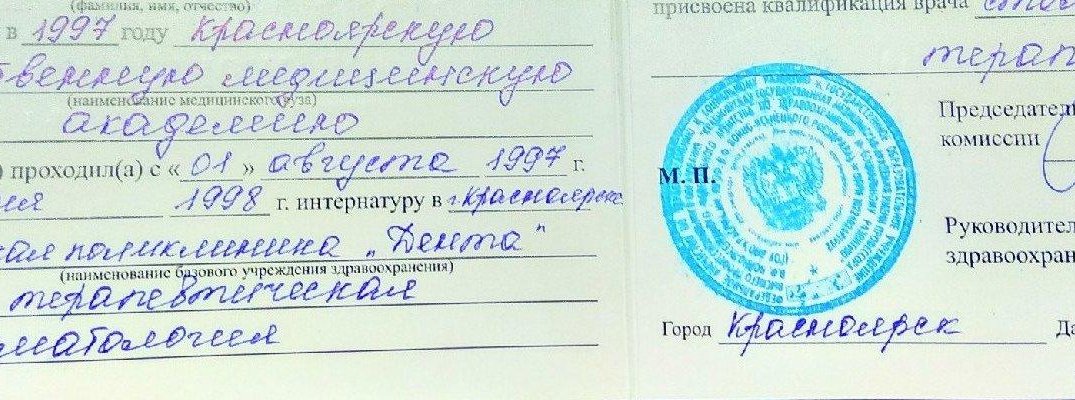 (фамилия, имя, отчество)
в 1997 году Красноярскую
твенную медицинскую
(наименование медицинского вуза)
академию
) проходил(а) с « 01 » августа 1997 г.
1998 г. интернатуру в г. Красноярске
кая поликлиника „Дента"
(наименование базового учреждения здравоохранения)
терапевтическая
матология
присвоена квалификация врача стом
терап
Председател
комиссии
М. П.
Руководител
здравоохран
Город Красноярск Да